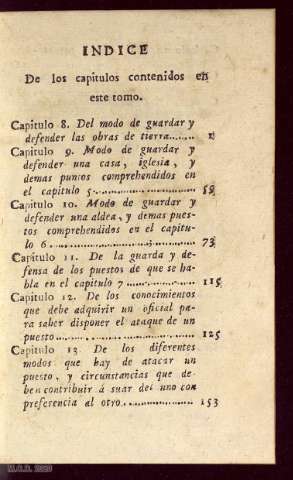 INDICE
De los capitulos contenidos en
este tomo.
Capitulo 8. Del modo de guardar y
defender las obras de tierra....... 1
Capitulo 9. Modo de guardar y
defender una casa, iglesia, y
demas puntos comprehendidos en
el capitulo 5.................... 59
Capitulo 10. Modo de guardar y
defender una aldea, y demas pues-
tos comprehendidos en el capitu-
lo 6............................ 73
Capitulo 11. De la guarda y de-
fensa de los puestos de que se ha-
bla en el capitulo 7.............. 115
Capitulo 12. De los conocimientos
que debe adquirir un oficial pa-
ra saber disponer el ataque de un
puesto........................... 125
Capitulo 13. De los diferentes
modos que hay de atacar un
puesto, y circunstancias que de-
ben contribuir á suar del uno con
preferencia al otro............... 153
M.C.D. 2020